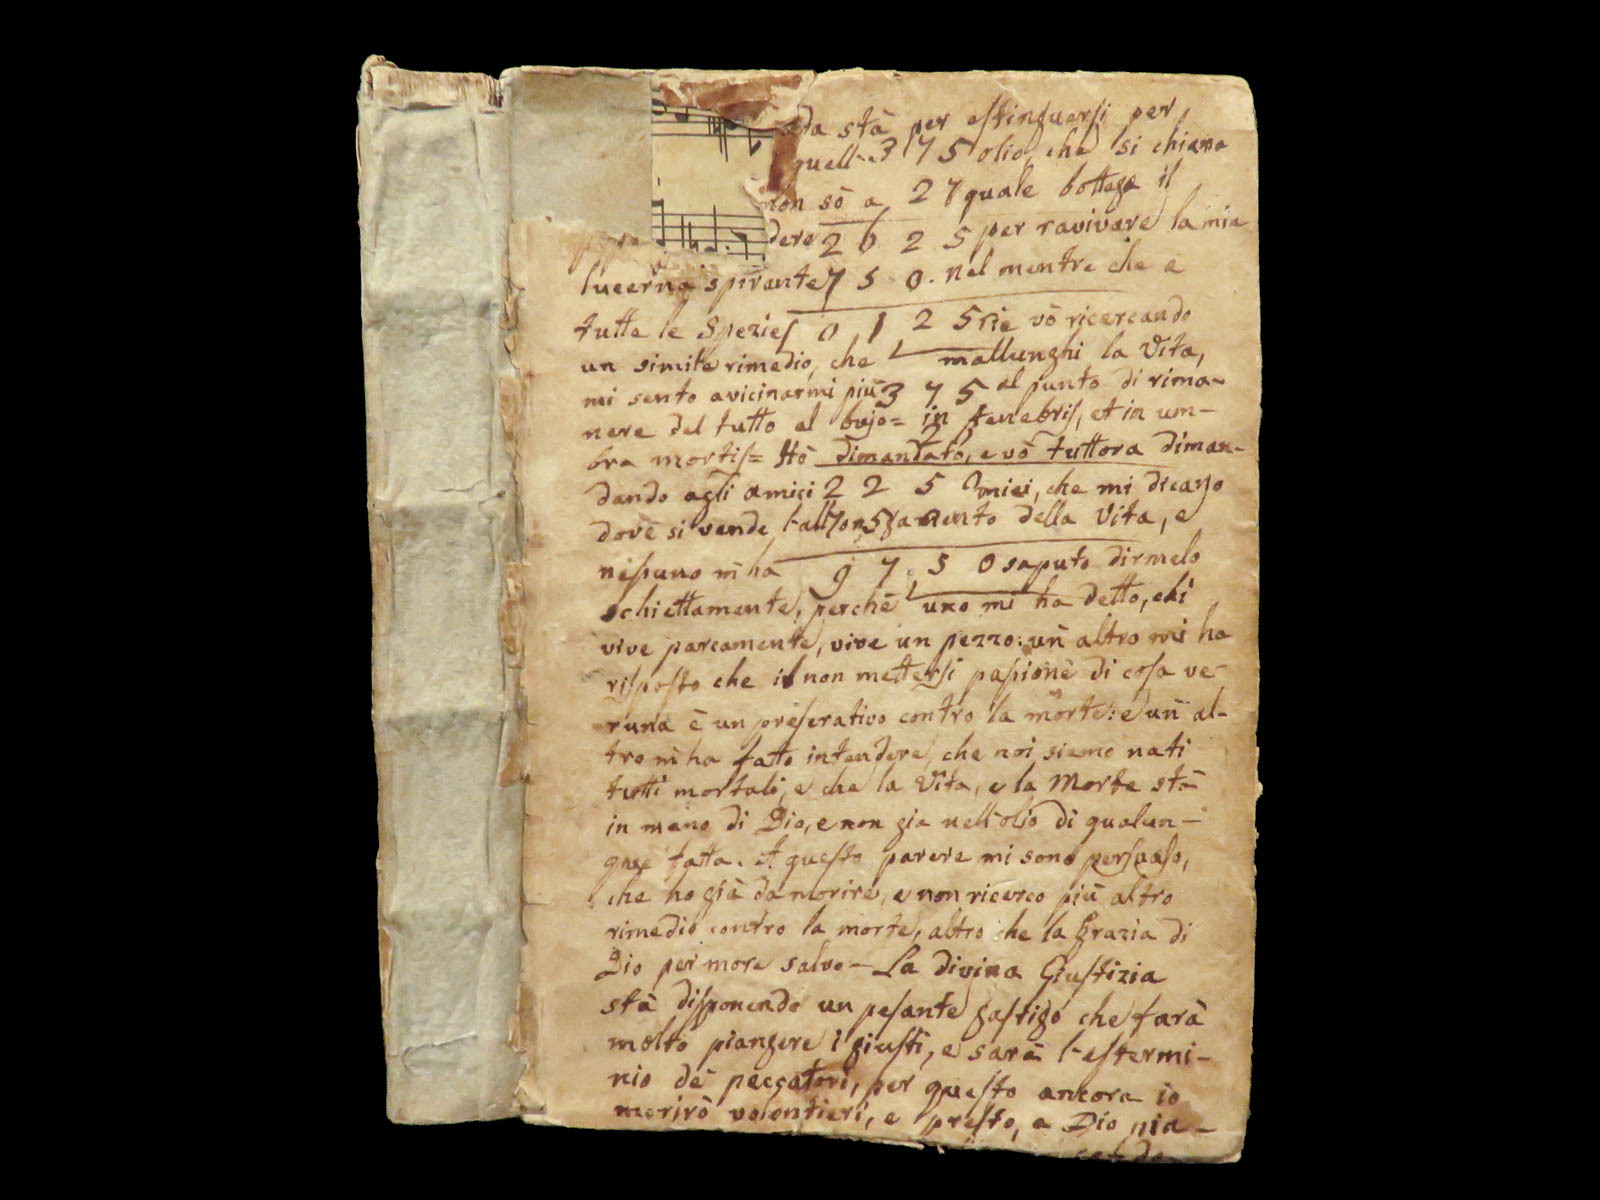 stà per estinguersi per
quell 3 7 5 olio, che si chiama
non sò a 2 7 quale bottega il
dere 2 6 2 5 per ravivare la mia
lucerna spirante 7 5 0. nel mentre che a
tutte le Spezie 0, 1 2 5 rie vò ricercando
un simile rimedio, che mallunghi la Vita,
mi sento avicinarmi più 3 7 5 al punto di rima-
nere del tutto al bujo= in tenebris, et in um-
2
bra mortis= Hò dimandato, e vò tuttora diman-
dando agli amici 2 2 5 miei, che mi dicano
dove si vende l'all 7 5 0 mento della Vita, e
nessuno m̃ ha 9 7 5 0 saputo dirmelo
schiettamente, perchè uno mi ha detto, chi
vive parcamente, vive un pezzo: uñ altro mi ha
risposto che il non mettersi passione di cosa ve-
runa è un preserativo contro la morte: e uñ al-
tro m̃ ha fato intendere, che noi siamo nati
tutti mortali, e che la Vita, e la Morte stà
in mano di Dio, e non gia nell'olio di qualun-
que fatta. A questo parere mi sono persuaso,
che ho già da morire, e non ricerco più altro
rimedio contro la morte, altro che la Grazia di
Dio per more salvo- La divina Giustizia
stà disponendo un pesante gastigo che farà
molto piangere i giusti, e sarà l'estermi-
nio dè peccatori, per questo ancora io
morirò volontieri, e presto, a Dio pia-